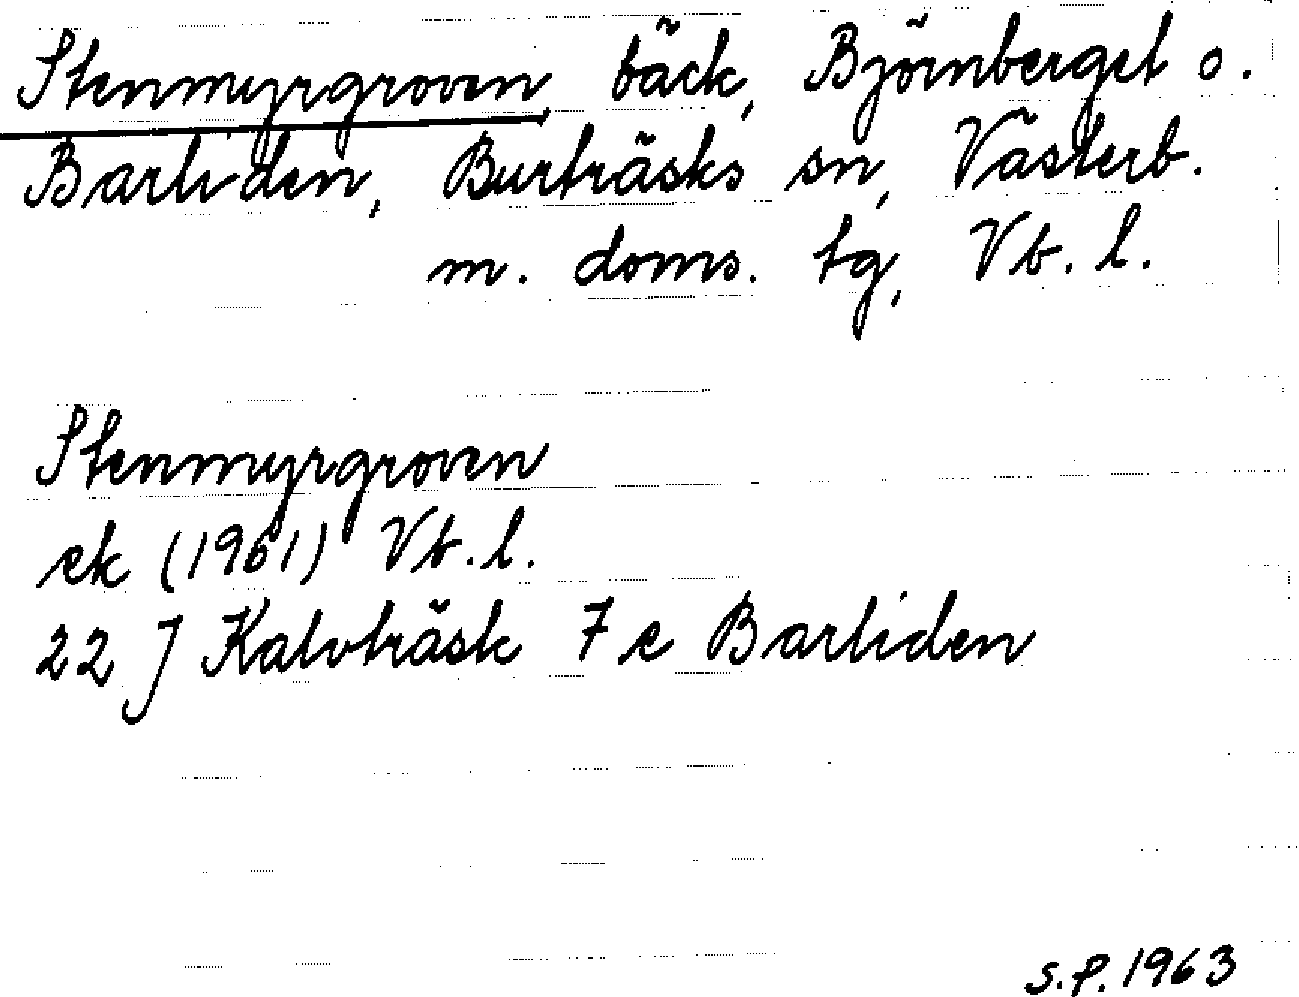 Stenmyrgroven, bäck, Björnberget o.
Barliden, Burträsks sn, Västerb.
m. doms. tg, Vb. l.
Stenmyrgroven
ek (1961) Vb. l.
22 J Kalvträsk 7 e Barliden
S.P. 1963